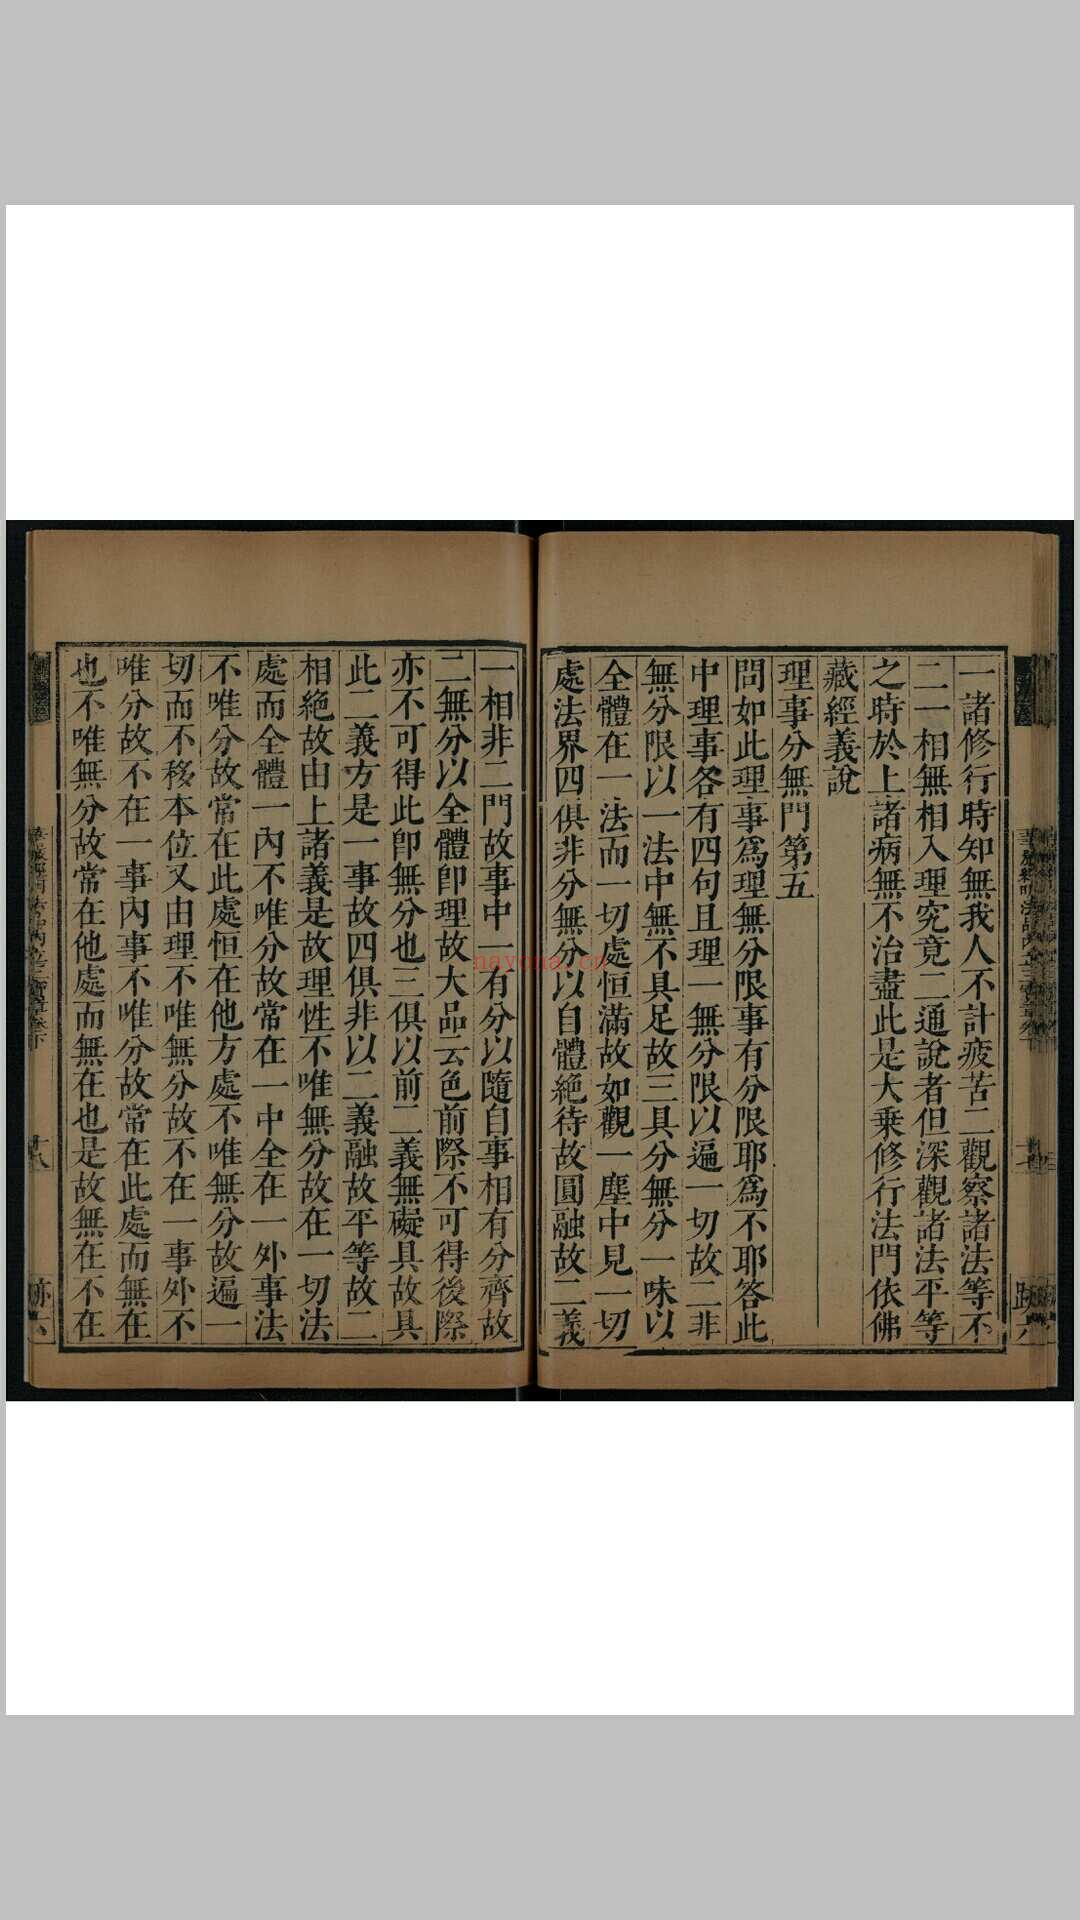 一諸修行時知無我人不計疲苦二觀察諸法等不
二一相無相入理究竟二通說者但深觀諸法平等
之時於上諸病無不治盡此是大乗修行法門依佛
藏經義說
理事分無門第五
問如此理事爲理無分限事有分限耶爲不耶答此
中理事各有四句且理一無分限以遍一切故二非
無分限以一法中無不具足故三具分無分一味以
全體在一法而一切處恒滿故如觀一塵中見一切
處法界四俱非分無分以自體絶待故圓融故二義
一相非二門故事中一有分以隨自事相有分齊故
二無分以全體卽理故大品云色前際不可得後際
亦不可得此卽無分也三俱以前二義無礙具故具
此二義方是一事故四俱非以二義融故平等故二
相絶故由上諸義是故理性不唯無分故在一切法
處而全體一內不唯分故常在一中全在一外事法
不唯分故常在此處恒在他方處不唯無分故遍一
切而不移本位又由理不唯無分故不在一事外不
唯分故不在一事內事不唯分故常在此處而無在
也不唯無分故常在他處而無在也是故無在不在
十八
nayona.cn